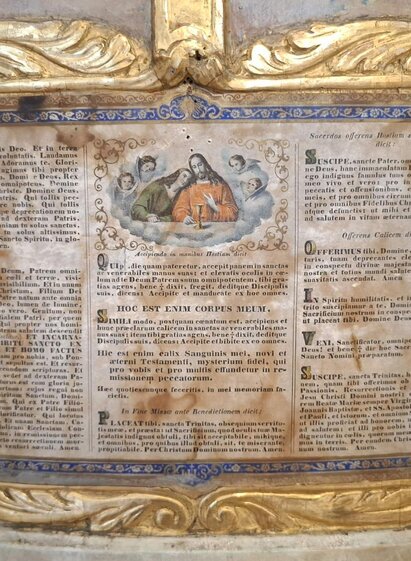 is Deo. Et in terra
voluntatis. Laudamus
Adoramus te. Glori-
agimus tibi propter
. Domi e Deus, Rex
omnipotens. Domine
hriste. Domine Deus,
Patris. Qui tollis pec-
nobis. Qui tollis
pe deprecationem no-
ad dexteram Patris,
iam tu solus sanctus.
tu solus altissimus,
Sancto Spiritu, in glo-
Deum, Patrem omni-
coeli et terrae, visi-
invisibilium. Et in unum
Christum, Filium Dei
Patre natum ante omnia
Deo, lumen de lumine,
vero. Genitum, non
lem Patri, per quem
nos homines
salutem descendit
ET INCARNA-
SANCTO EX
FACTUS
pro nobis, sub Pon-
sepultus est.
die secundum
sedet ad dexteram Pa-
est cum gloria ju-
cujus regni non
Sanctum, Domi-
ex Patre Filio-
Patre et Filio simul
glorificatur, qui locutus
Et unam Sanctam, Ca-
Ecclesiam Con-
in remissionem pec-
resurrectionem mor-
saeculi. Amen.
Accipiendo in manibus Hostiam dicit
QUI PRIdie quam pateretur, accepit panem in sanctas
ac venerabiles manus suas, et elevatis oculis in coe-
lum ad te Deum Patrem suum omnipotentem, tibi gra-
tias agens, bene ✠ dixit, fregit, deditque Discipulis
suis, dicens: Accipite et manducate ex hoc omnes.
HOC EST ENIM CORPUS MEUM.
SIMILI modo, postquam coenatum est, accipiens et
hunc praeclarum calicem in sanctas ac venerabiles ma-
nus suas: item tibi gratias agens, bene ✠ dixit, deditque
Discipulis suis, dicens: Accipite et bibite ex eo omnes.
Hic est enim calix Sanguinis mei, novi et
aeterni Testamenti, mysterium fidei, qui
pro vobis et pro multis effundetur in
remissionem peccatorum.
Haec quotiescumque feceritis, in mei memoriam fa-
cietis.
In Fine Missae ante Benedictionem dicit:
PLACEAT tibi, sancta Trinitas, obsequium servitu-
tis meae, et praesta: ut Sacrificium, quod oculis tuae Ma-
jestatis indignus obtuli, tibi sit acceptabile, mihique,
et omnibus, pro quibus illud obtuli, sit, te miserante,
propitiabile. Per Christum Dominum nostrum. Amen.
Sacerdos offerens Hostiam
dicit:
SUSCIPE, sancte Pater, omni-
ne Deus, hanc immaculatam
ego indignus famulus tuus
meo vivo et vero: pro
peccatis et offensionibus, et
meis, et pro omnibus circum
et pro omnibus fidelibus Chris
atque defunctis: ut mihi et
ad salutem in vitam aeternam
Offerens Calicem d
OFFERIMUS tibi, Domine,
taris, tuam deprecantes cle
in conspectu divinae majesta
nostra et totius mundi salute
suavitatis ascendat. Amen.
IN Spiritu humilitatis, et
mito suscipiamur a te, Domi
sacrificium nostrum in conspec
ut placeat tibi, Domine Deus.
VENI, Sanctificator, omnipot
Deus: et bene ✠ dic hoc Sac
Sancto Nomini praeparatum.
SUSCIPE, sancta Trinitas,
nem, quam tibi offerimus ob
Passionis, Resurrectionis et
Jesu Christi Domini nostri,
rem Beatae Mariae semper Virgin
Joannis Baptistae, et SS. Aposto
et Pauli, et istorum, et omni
ut illis proficiat ad honorem
ad salutem: et illi pro nobis
dignentur in coelis, quorum mem
mus in terris. Per eumdem Christ
num nostrum. Amen.